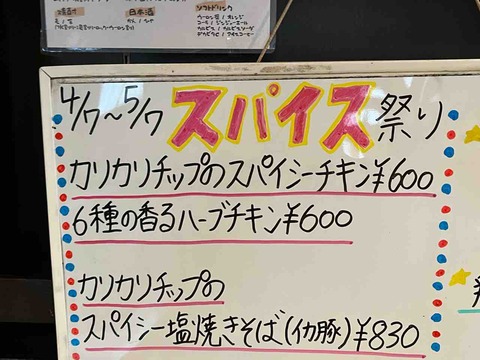 焼酎
日本酒
ソフトドリンク
4/7~5/7 スパイス祭り
カリカリチップのスパイシーチキン¥600
6種の香るハーブチキン¥600
カリカリチップの
スパイシー塩焼きそば(イカ豚)¥830